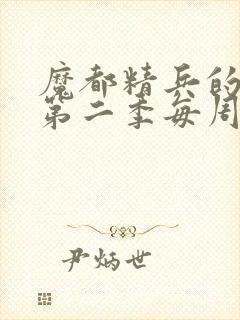 魔都精兵的
第二季每周
尹炳世